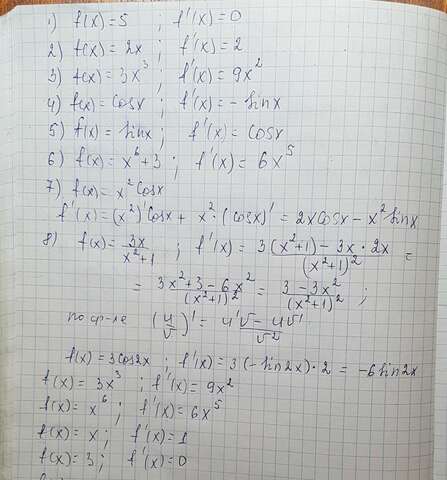 1) f(x)=5 ; f'(x)=0
2) f(x)=2x ; f'(x)=2
3) f(x)=3x³ ; f'(x)=9x²
4) f(x)=cosx ; f'(x)=-sinx
5) f(x)=sinx ; f'(x)=cosx
6) f(x)=x⁶+3 ; f'(x)=6x⁵
7) f(x)=x²cosx
f'(x)=(x²)'cosx+x²·(cosx)'=2xcosx-x²sinx
8) f(x)=3x/(x²+1) ; f'(x)=(3(x²+1)-3x·2x)/(x²+1)²=
=(3x²+3-6x²)/(x²+1)²=(3-3x²)/(x²+1)² ;
по ф-ле (u/v)'=(u'v-uv')/v²
f(x)=3cos2x ; f'(x)=3(-sin2x)·2=-6sin2x
f(x)=3x³ ; f'(x)=9x²
f(x)=x⁶ ; f'(x)=6x⁵
f(x)=x ; f'(x)=1
f(x)=3 ; f'(x)=0